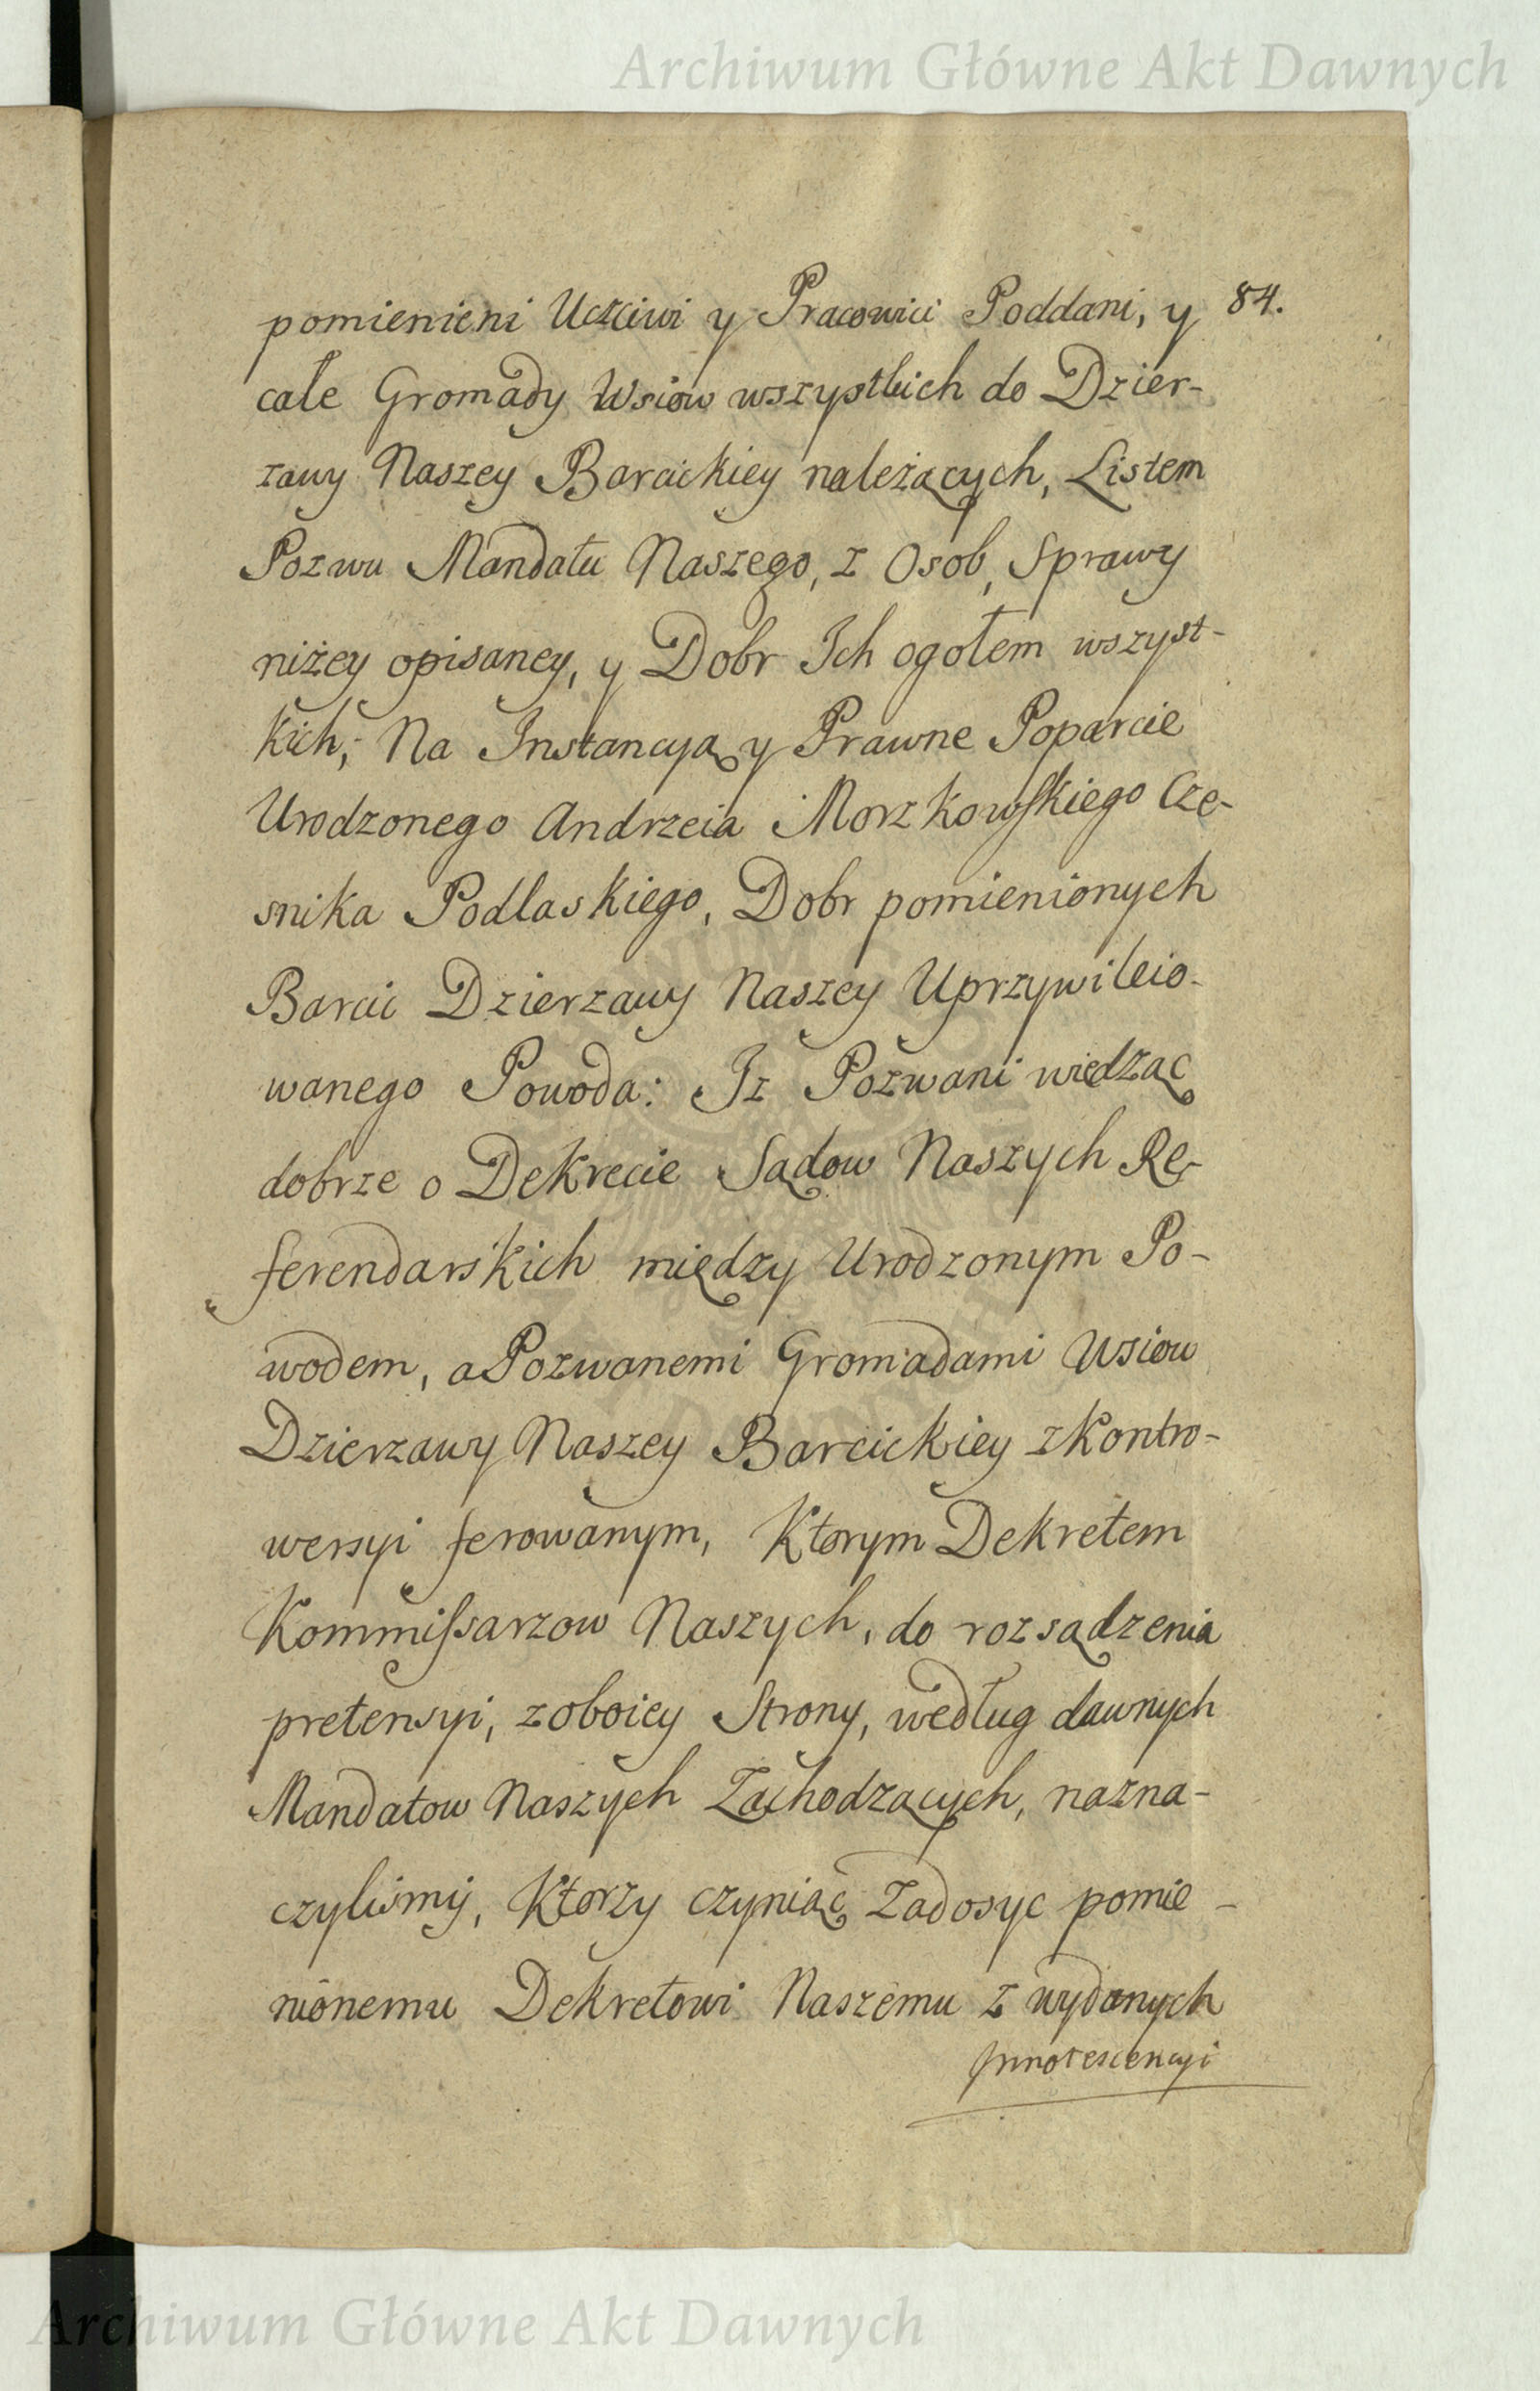 Archiwum Główne Akt Dawnych
84.
pomienieni Uczciwi y Pracowici Poddani, y
całe Gromady Wsiow wszystkich do Dzier-
zawy Naszey Barcickiey należących, Listem
Pozwu Mandatu Naszego, z Osob, Sprawy
niżey opisaney, y Dobr Ich ogołem wszyst-
kich; Na Instancyą y Prawne Poparcie
Urodzonego Andrzeia Morzkowskiego Cze-
snika Podlaskiego, Dobr pomienionych
Barcic Dzierzawy Naszey Uprzywileio-
wanego Powoda: Iz Pozwani wiedząc
dobrze o Dekrecie Sądow Naszych Re-
ferendarskich między Urodzonym Po-
wodem, a Pozwanemi Gromadami Wsiow
Dzierzawy Naszey Barcickiey z Kontro-
wersyi ferowanym, Ktorym Dekretem
Kommissarzow Naszych, do rozsądzenia
pretensyi, z oboiey Strony, według dawnych
Mandatow Naszych Zachodzących, nazna-
czyliśmy, Ktorzy czyniąc Zadosyc pomie-
nionemu Dekretowi Naszemu z wydanych
Innotescencyi
Archiwum Główne Akt Dawnych